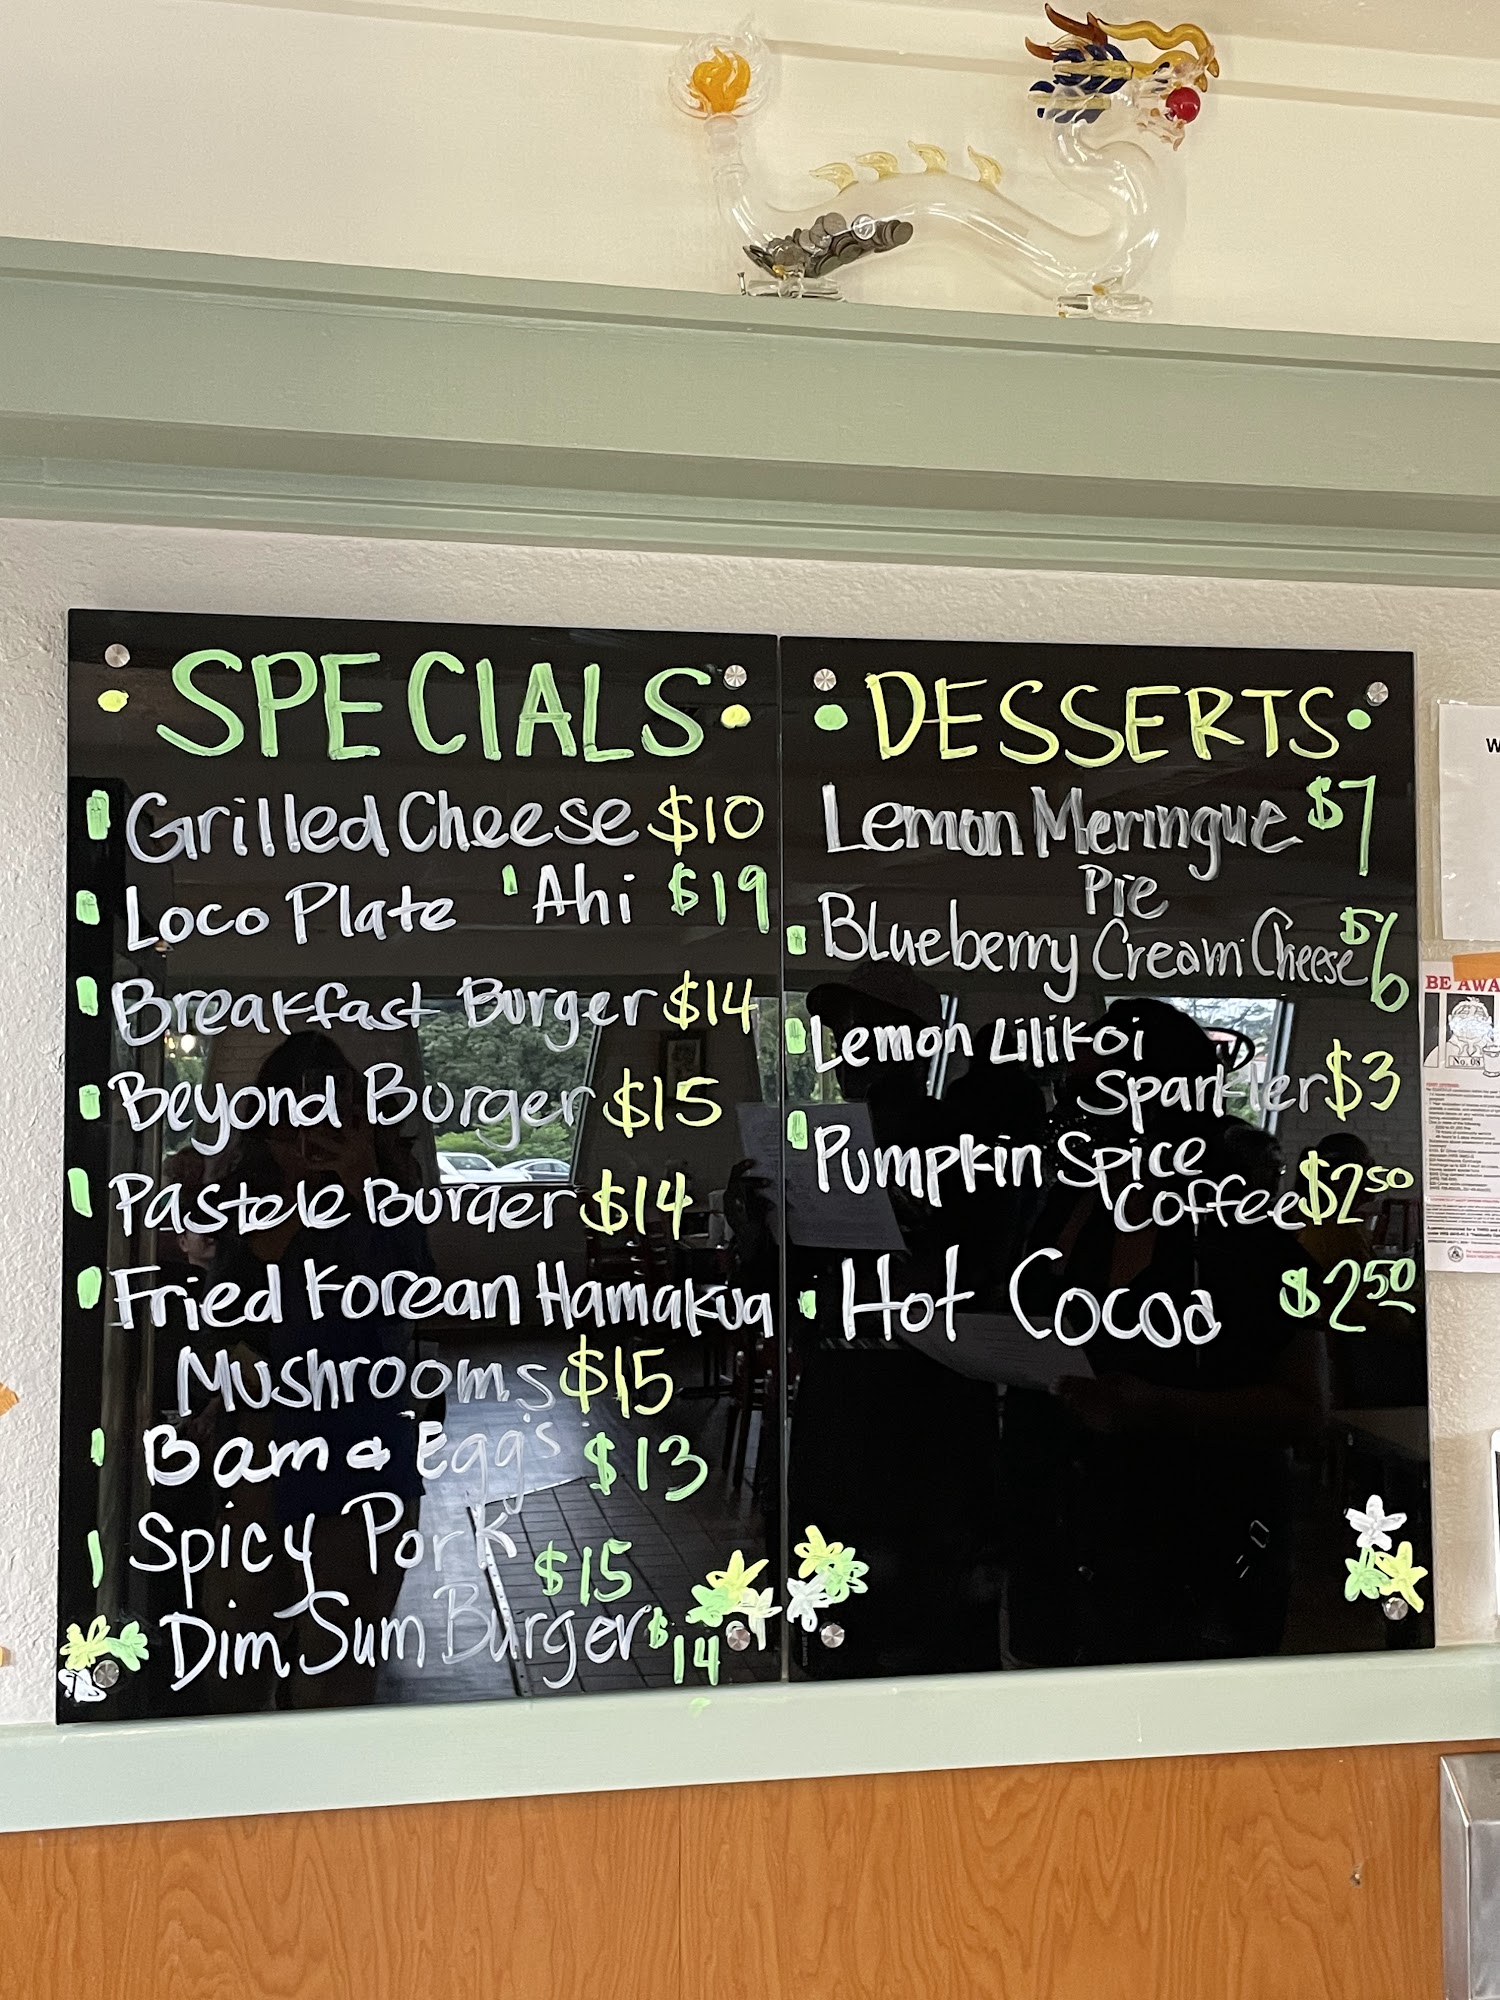 SPECIALS
Grilled Cheese $10
Loco Plate Ahi $19
Breakfast Burger $14
Beyond Burger $15
Pastele Burger $14
Fried Korean Hamakua
Mushrooms $15
Bam & Eggs $13
Spicy Pork $15
Dim Sum Burger $14
DESSERTS
Lemon Meringue $7
Pie
Blueberry Cream Cheese $6
Lemon Lilikoi
Sparkler $3
Pumpkin Spice
Coffee $2.50
Hot Cocoa $2.50
W
BE AWA
No. 08